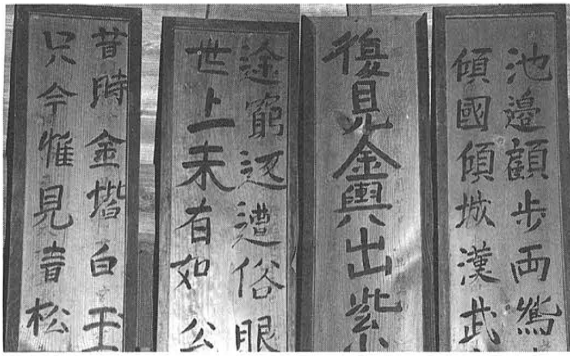 池邊顧步両鴛
傾國傾城漢武
復見金輿出紫
途窮返遭俗眼
世上未有如公
昔時金堦白玉
只今惟見青松